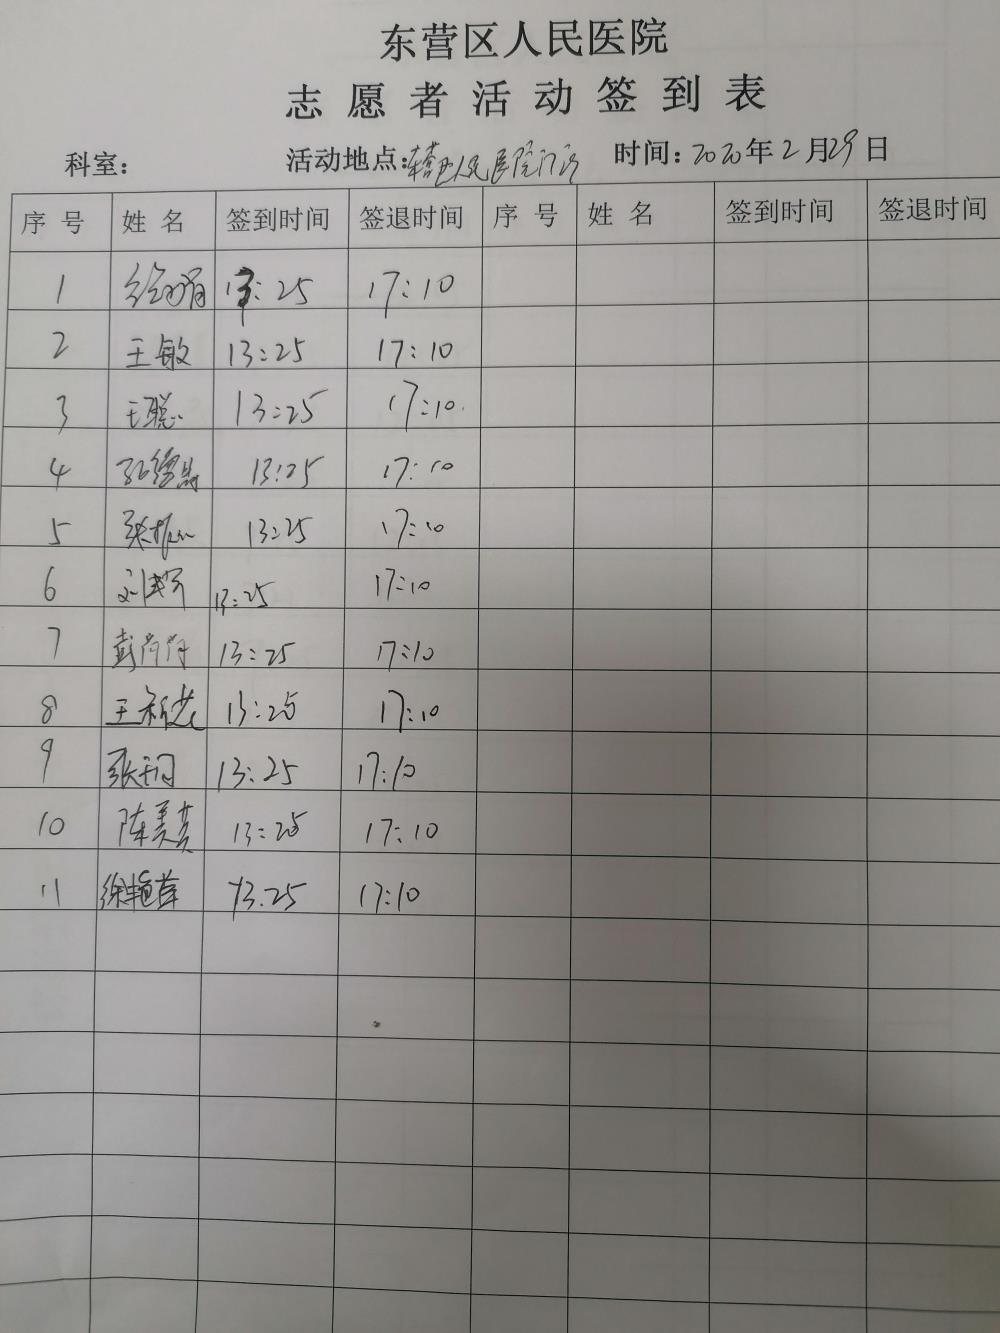 东营区人民医院
志愿者活动签到表
科室: 活动地点:东营区人民医院门诊 时间:2020年2月29日
序号 姓名 签到时间 签退时间 序号 姓名 签到时间 签退时间
1 13:25 17:10
2 王敏 13:25 17:10
3 王聪 13:25 17:10.
4 13:25 17:10
5 张 13:25 17:10
6 刘 13:25 17:10
7 彭 13:25 17:10
8 王新 13:25 17:10
9 张 13:25 17:10
10 陈美英 13:25 17:10
11 徐艳萍 13.25 17:10